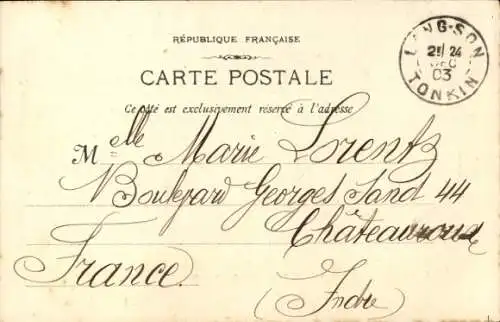 RÉPUBLIQUE FRANÇAISE
CARTE POSTALE
Ce côté est exclusivement réservé à l'adresse
LANG-SON
24
DEC
03
TONKIN
Mlle Marie Lorentz
Boulevard Georges Sand 44
Châteauroux
France.
(Indre)